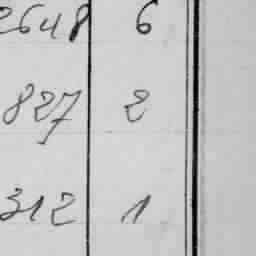 2648 6
827 2
312 1